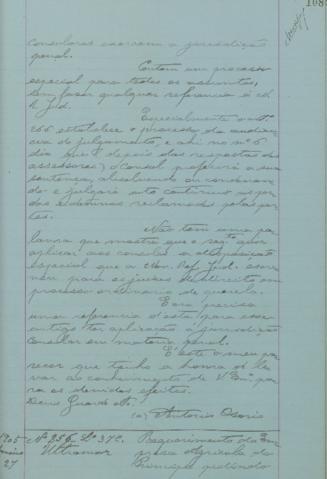 108
consulares exerçam a jurisdicção
penal.
Contem um processo
especial para todos os assumptos,
sem fazer qualquer referencia á
Jud.
Especialmente o artº
266 estabelece o processo da audien
cia de julgamento, e ahi no nº 6
diz que depois das respostas dos
assessores, o Consul proferirá a sua
sentença, absolvendo ou condemnan
do e julgará acto continuo as per
das e damnos reclamados pelas par
tes.
Não tem uma pa
lavra que mostre que o regto quer
applicar aos consules a disposição
especial que a Nov. Ref. Jud.
para os juizes de direito em
processo ordinario de querela.
Era precisa
uma referencia d'esta para esse
artigo ter aplicação á jurisdição
consular em materia penal.
É este o meu pa
recer que tenho a honra de le
var ao conhecimento de V. Exª pa
ra os devidos efeitos.
Deus Guarde etc.
(a) Antonio Osorio
1905
27
Nº 256, Lº 37C.
Ultramar
Requerimento da Em
presa Agricola do
Principe pedindo